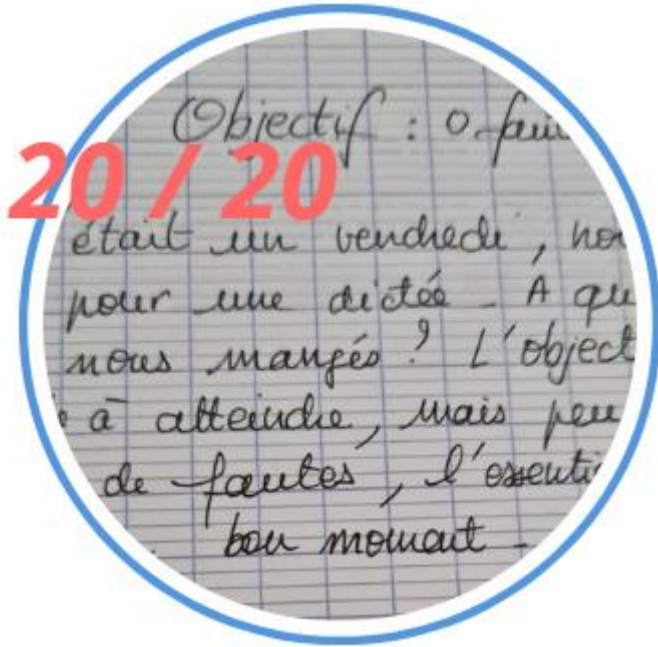 Objectif : 0
20 / 20
était un vendredi,
pour une dictée - A
nous mangés ? L'object
à atteindre, mais peu
de fautes, l'essenti
bon moment -